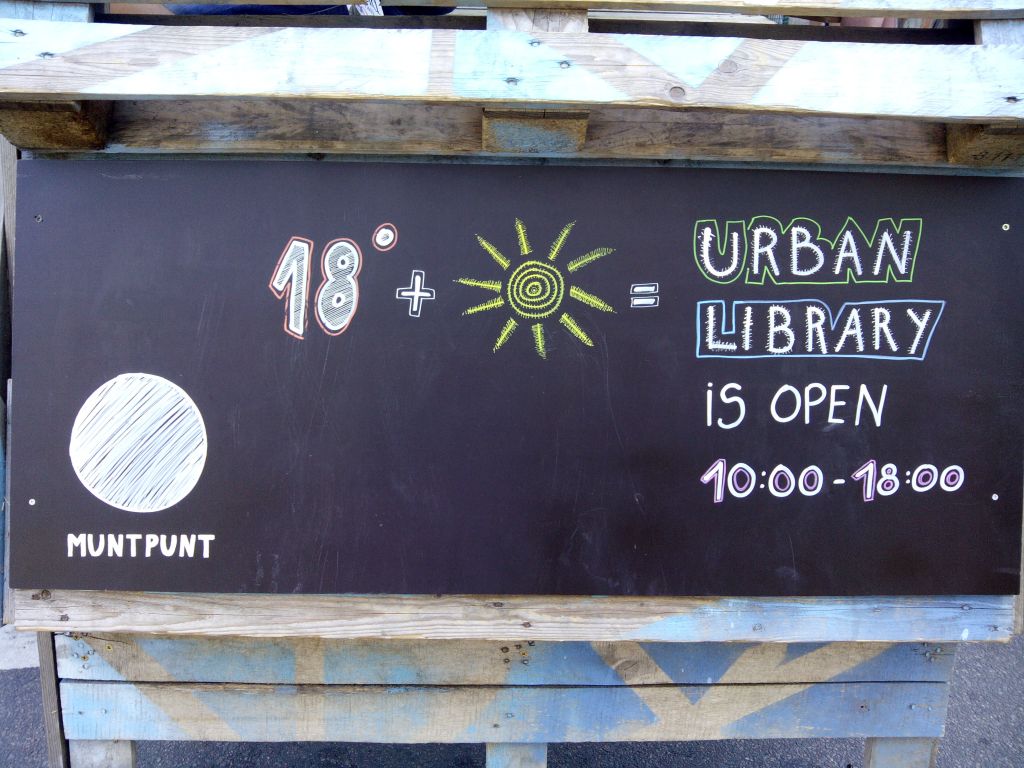 18° + = URBAN
LIBRARY
iS OPEN
10:00 - 18:00
MUNTPUNT